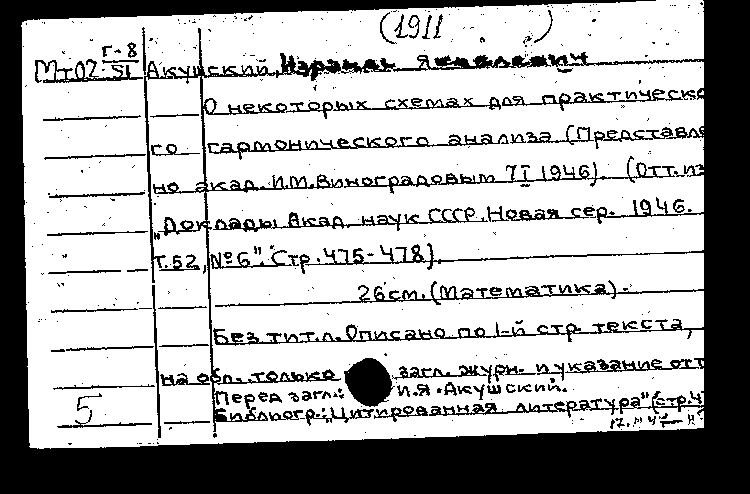 (1911        )
Г-8
Мт02.51 Акушский, Израиль Яковлевич
О некоторых схемах для практическо
го гармонического анализа (Представле
но акад. И.М.Виноградовым 7 I 1946). (Отт. из
„Доклады Акад. наук СССР. Новая сер. 1946.
Т.52, №6". Стр.475-478).
26см. (Математика).
Без тит.л. Описано по 1-й стр. текста,
на обл. только загл. журн. и указание отт
Перед загл.: И.Я. Акушский.
5 Библиогр.: „Цитированная литература" (стр.4